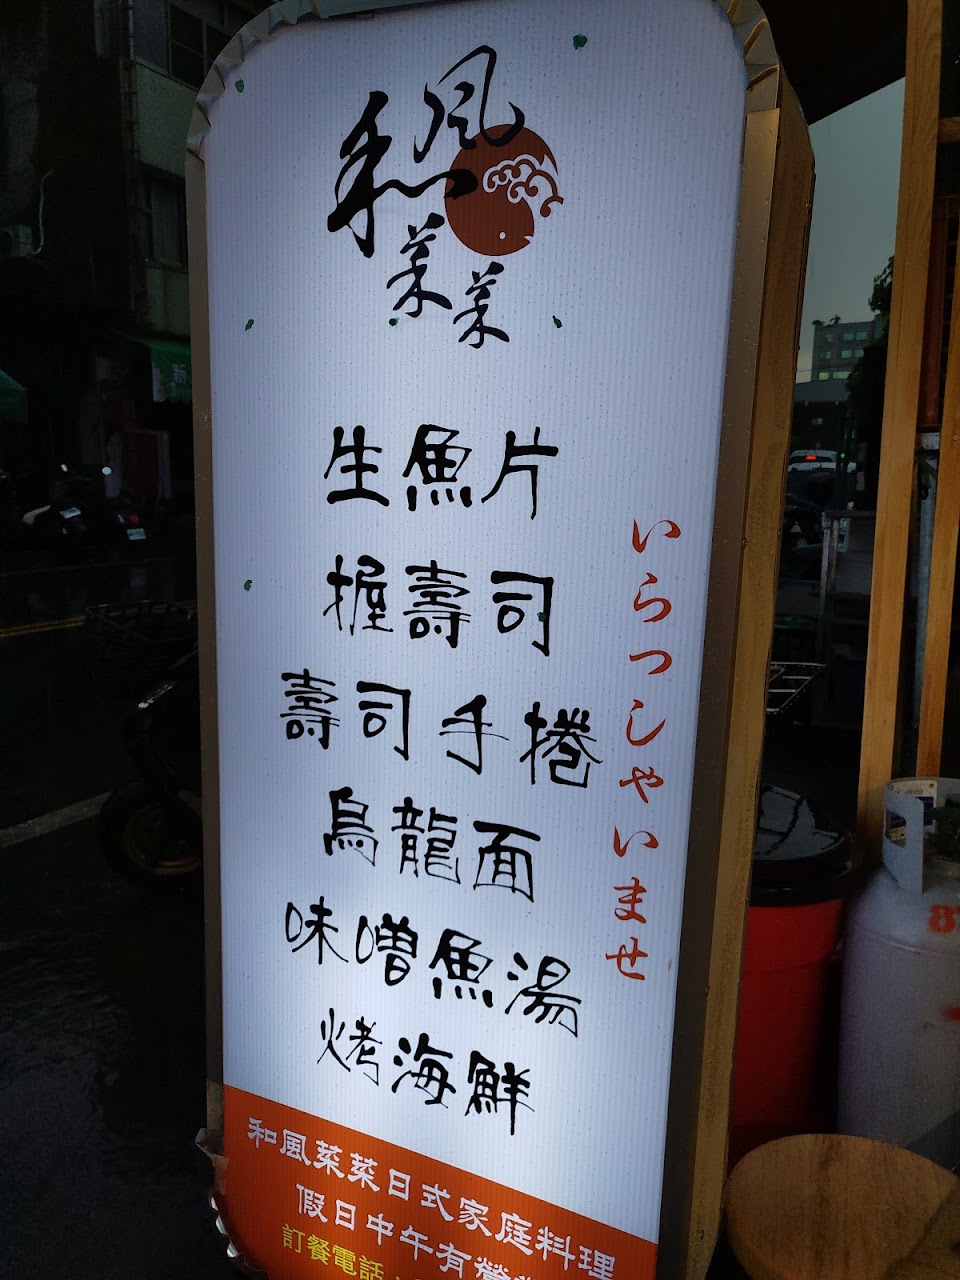 和風
菜菜
生魚片
握壽司
壽司手捲
烏龍面
味噌魚湯
烤海鮮
いらつしゃいませ
和風菜菜日式家庭料理
假日中午有營
訂餐電話：